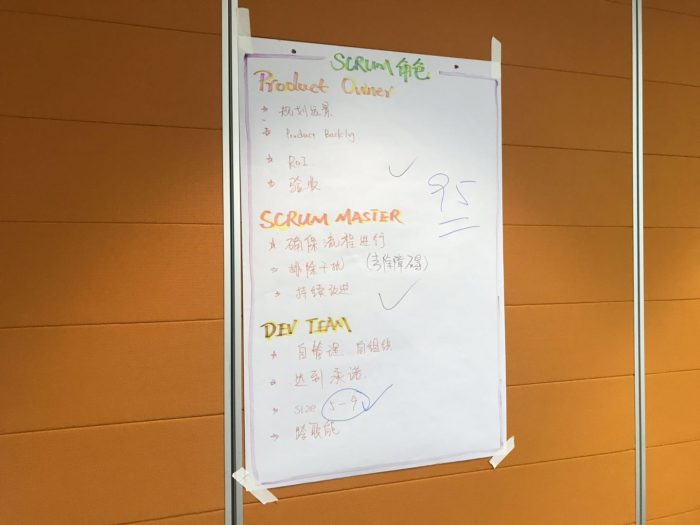 SCRUM 角色
Product Owner
规划远景
Product Backlog
ROI
验收
95
SCRUM MASTER
确保流程进行
排除干扰 (去除障碍)
持续改进
DEV TEAM
自管理 自组织
达到承诺
size 5-9
跨职能